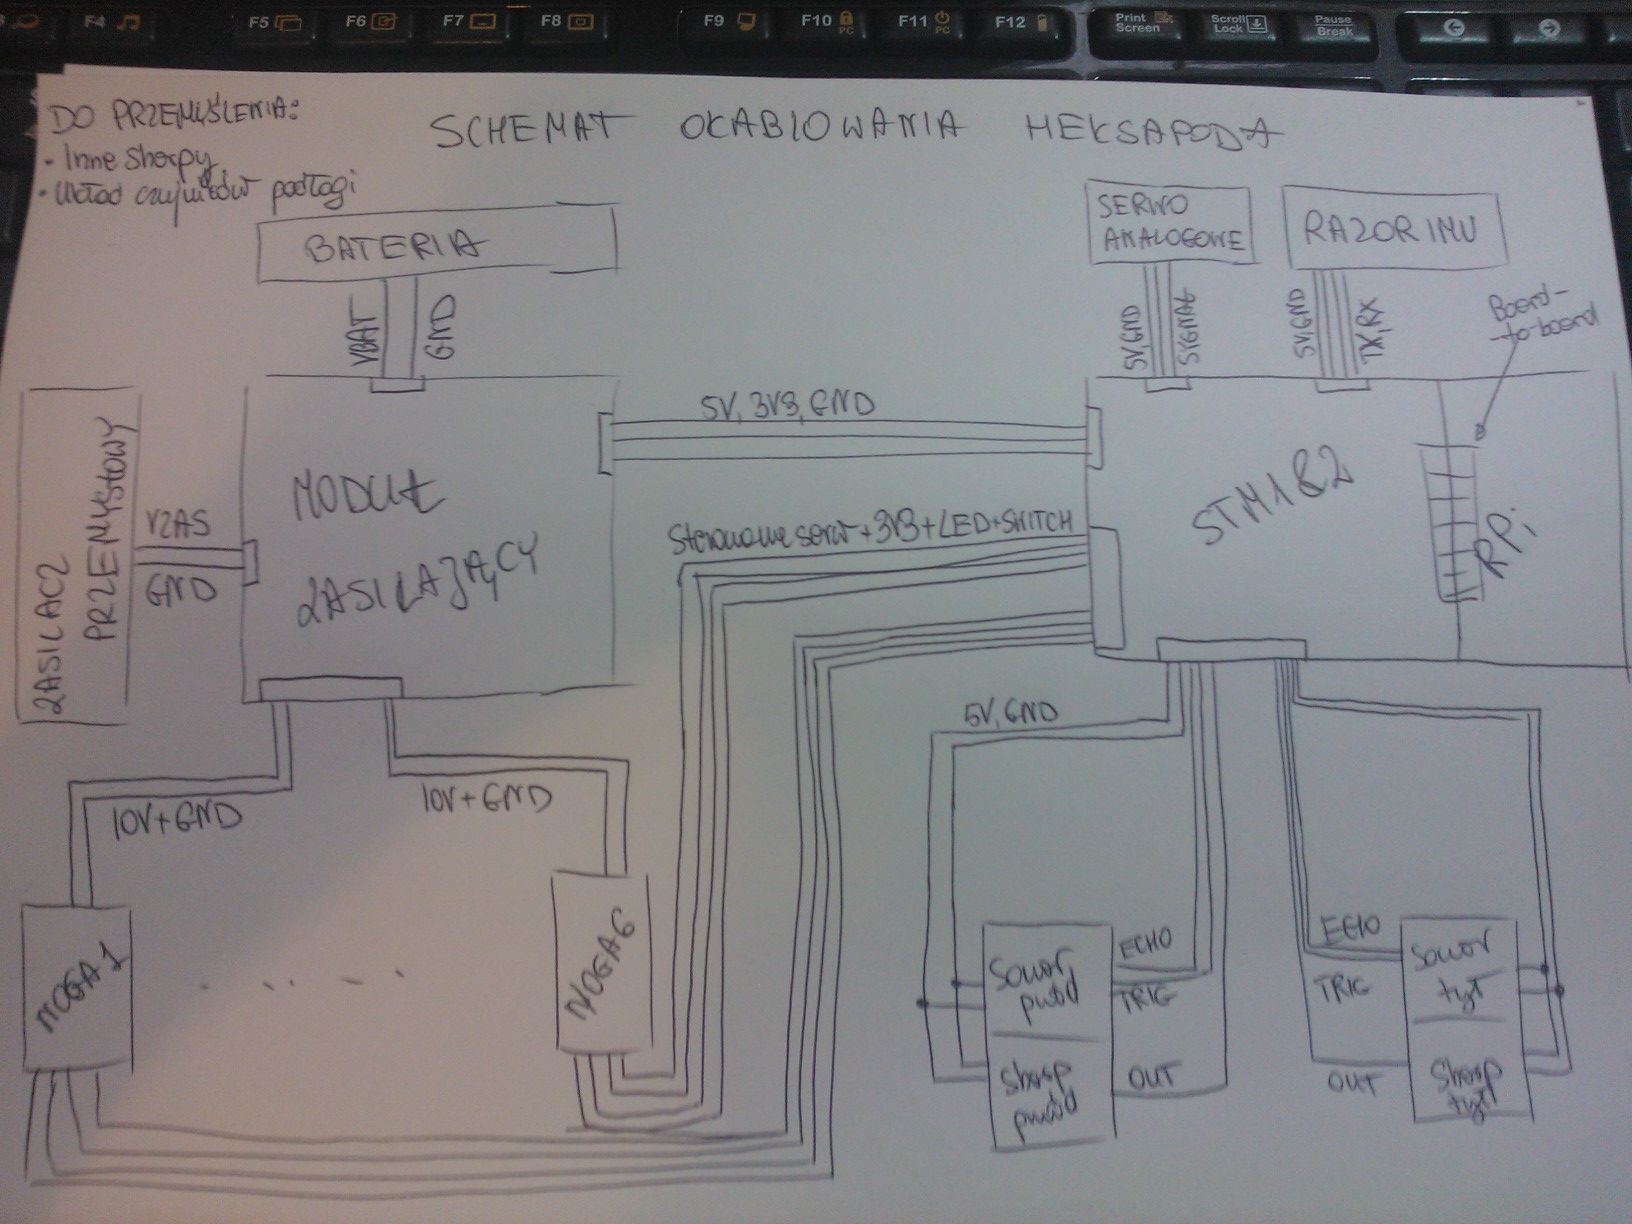 F4
F5
F6
F7
F8
F9
F10
PC
F11
PC
F12
Print
Screen
Scroll
Lock
Pause
Break
DO PRZEMYŚLENIA:
• Inne Sharpy
• Układ czujników podłogi
SCHEMAT OKABLOWANIA HEKSAPODA
BATERIA
VBAT
GND
SERWO
ANALOGOWE
5V,GND
SYGNAŁ
RAZOR IMU
5V,GND
TX,RX
Board-
-to-board
ZASILACZ
PRZEMYSŁOWY
VZAS
GND
MODUŁ
ZASILAJĄCY
5V, 3V3, GND
Sterowanie serw + 3V3 + LED + SWITCH
STM 1 & 2
RPi
10V+GND
10V+GND
NOGA 1
. . . . . .
NOGA 6
5V, GND
Sonar
przód
Sharp
przód
ECHO
TRIG
OUT
ECHO
TRIG
OUT
Sonar
tył
Sharp
tył